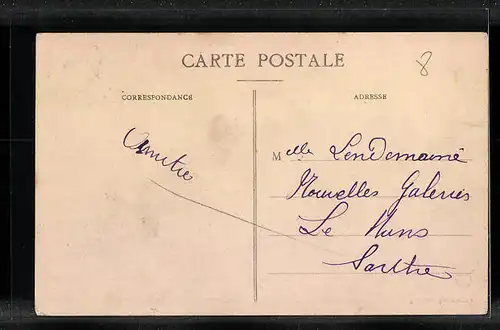 CARTE POSTALE
8
CORRESPONDANCE
ADRESSE
Melle Lendemaine
Nouvelles Galeries
Le Mans
Sarthe